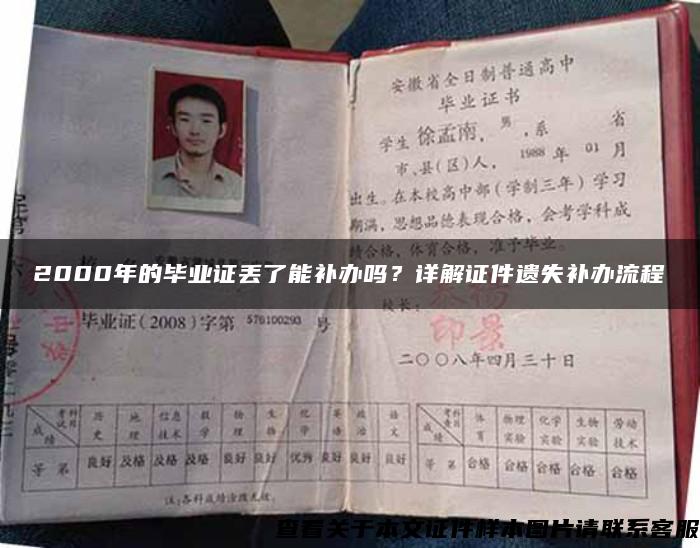 安徽省全日制普通高中
毕业证书
学生 徐孟南，男，系 省
市、县(区)人，1988年01月
出生。在本校高中部(学制三年)学习
期满，思想品德表现合格，会考学科成
绩合格，体育合格，准予毕业。
2000年的毕业证丢了能补办吗？详解证件遗失补办流程
校长：
印景
毕业证(2008)字第 576100293 号
二〇〇八年四月三十日
考试科目 历史 地理 信息技术 数学 物理 生物 化学 英语 政治 语文
成绩
等第 良好 及格 及格 及格 良好 良好 优秀 良好 良好 良好
考查科目 体育 物理实验 化学实验 生物实验 劳动技术
成绩
等第 合格 合格 合格 合格 合格
注：各科成绩涂改无效。
查看关于本文证件样本图片请联系客服